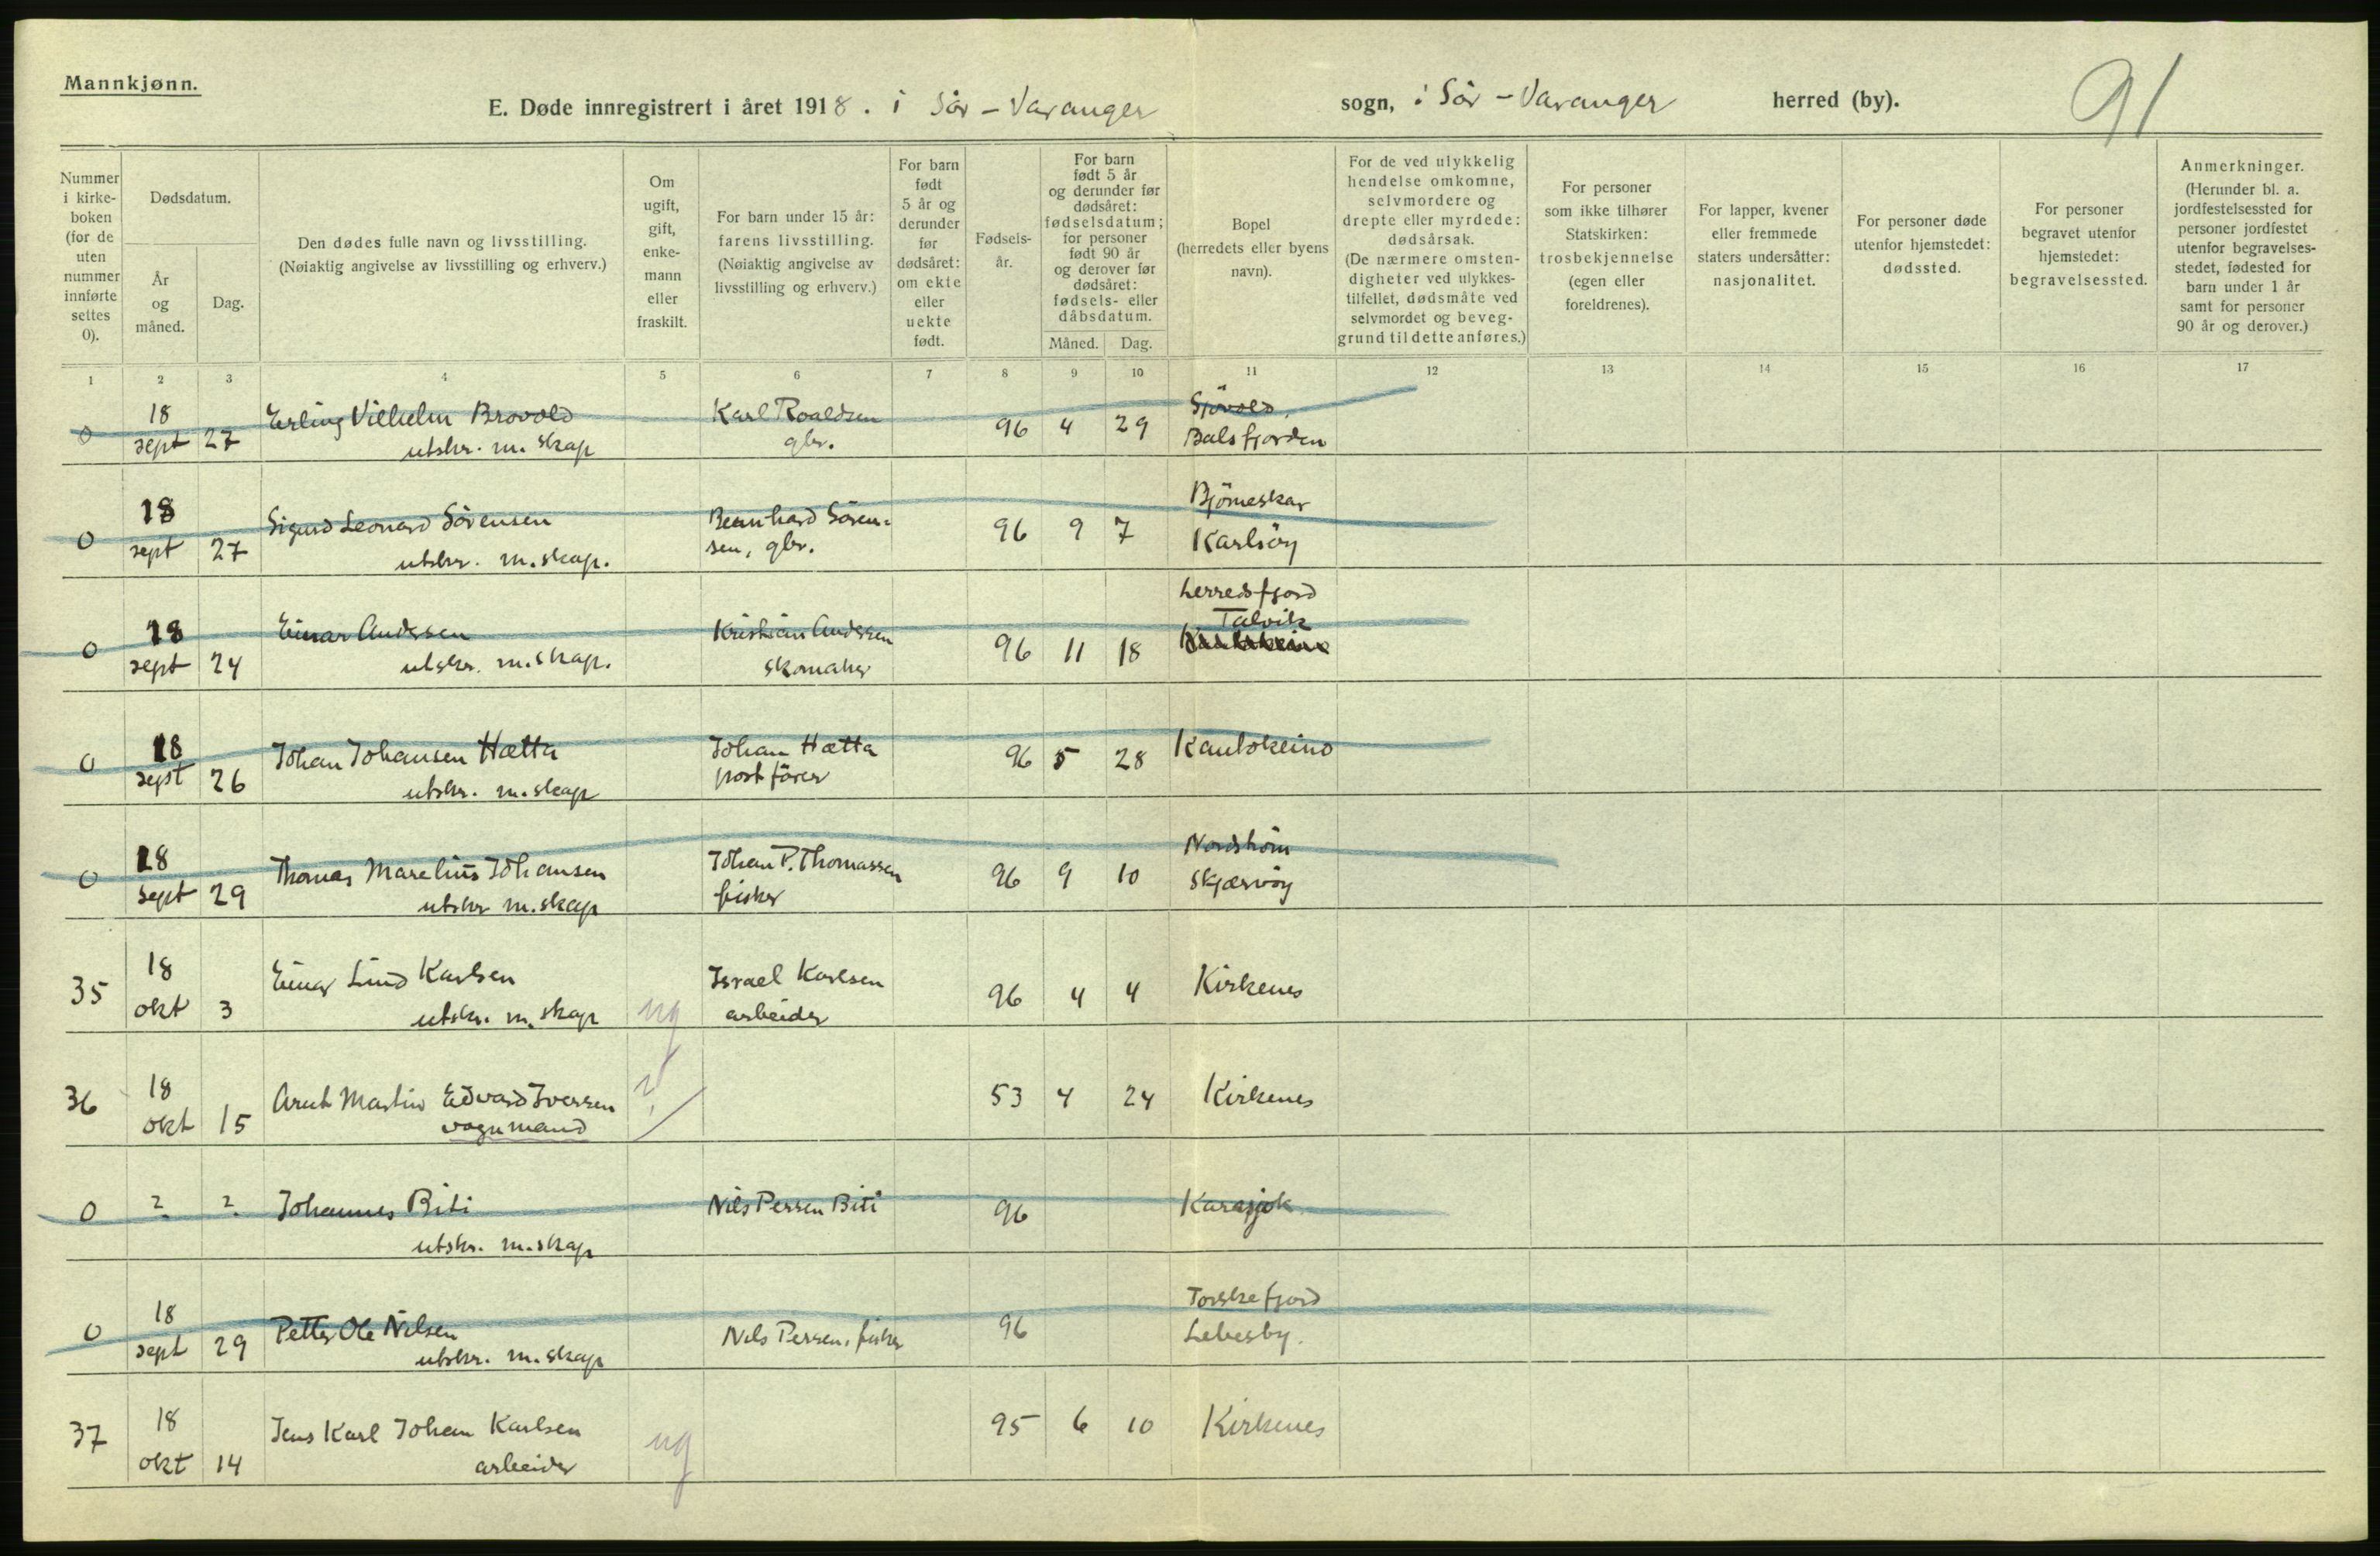 Mannkjønn.
E. Døde innregistrert i året 1918. i Sör-Varanger sogn, i Sör-Varanger herred (by).
91
Nummer i kirke-boken (for de uten nummer innførte settes 0).
Dødsdatum.
År og måned.
Dag.
Den dødes fulle navn og livsstilling.
(Nøiaktig angivelse av livsstilling og erhverv.)
Om ugift, gift, enke-mann eller fraskilt.
For barn under 15 år: farens livsstilling.
(Nøiaktig angivelse av livsstilling og erhverv.)
For barn født 5 år og derunder før dødsåret: om ekte eller uekte født.
Fødsels-år.
For barn født 5 år og derunder før dødsåret: fødselsdatum; for personer født 90 år og derover før dødsåret: fødsels- eller dåbsdatum.
Måned. Dag.
Bopel (herredets eller byens navn).
For de ved ulykkelig hendelse omkomne, selvmordere og drepte eller myrdede: dødsårsak.
(De nærmere omsten-digheter ved ulykkes-tilfellet, dødsmåte ved selvmordet og beveg-grund til dette anføres.)
For personer som ikke tilhører Statskirken: trosbekjennelse (egen eller foreldrenes).
For lapper, kvener eller fremmede staters undersåtter: nasjonalitet.
For personer døde utenfor hjemstedet: dødssted.
For personer begravet utenfor hjemstedet: begravelsessted.
Anmerkninger.
(Herunder bl. a. jordfestelsessted for personer jordfestet utenfor begravelses-stedet, fødested for barn under 1 år samt for personer 90 år og derover.)
1 2 3 4 5 6 7 8 9 10 11 12 13 14 15 16 17
0 18 sept 27 Erling Vilhelm Brovold
utskr. m. skap
Karl Roaldsen
gbr.
96 4 29
Sjövold,
Balsfjorden
0 18 sept 27 Sigurd Leonard Sörensen
utskr. m. skap.
Bernhard Sören-
sen, gbr.
96 9 7
Karlsöy
0 18 sept 24 Einar Andersen
utskr. m. skap.
Kristian Andersen
skomaker
96 11 18
Lerresfjord
Talvik
0 18 sept 26 Johan Johansen Hætta
utskr. m. skap
Johan Hætta
postförer
96 5 28
Kautokeino
0 18 sept 29 Thomas Marelius Johansen
utskr m. skap
Johan P. Thomassen
fisker
96 9 10
Skjærvöy
35 18 okt 3 Einar Lind Karlsen
utskr. m. skap
ug
Israel Karlsen
arbeider
96 4 4
Kirkenes
36 18 okt 15 Arnt Martin Edvard Iversen
vognmand
?
53 4 24
Kirkenes
0 ? ? Johannes Biti
utskr. m. skap
Nils Persen Biti
96
Karasjok
0 18 sept 29 Petter Ole Nilsen
utskr. m. skap
Nils Persen, fisker
96
Torskefjord
Lebesby.
37 18 okt 14 Jens Karl Johan Karlsen
arbeider
ug
95 6 10
Kirkenes